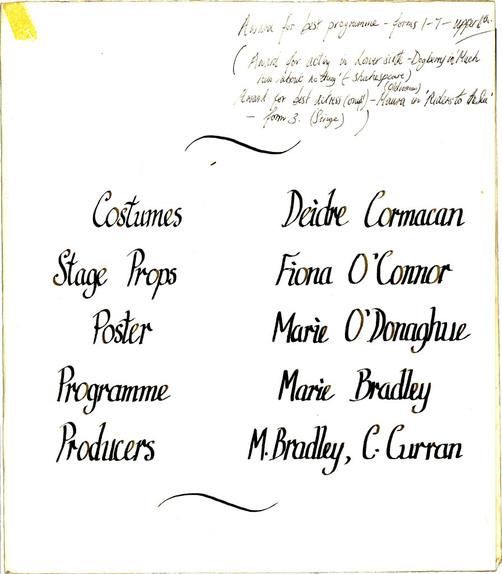 Award for best programme - forms 1-7 - upper 6th.
(Award for acting in Lower sixth - Dogberry in 'Much
Ado about nothing' (- Shakespeare)
Award for best actress (one) - Maura in 'Riders to the Sea'
- form 3. (Synge) )
Costumes Deidre Cormacan
Stage Props Fiona O'Connor
Poster Marie O'Donaghue
Programme Marie Bradley
Producers M. Bradley, C. Curran